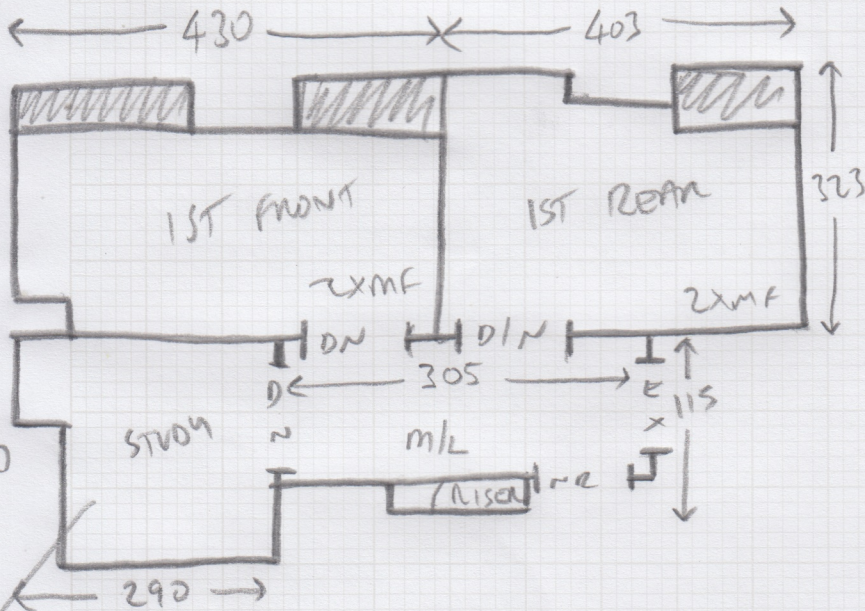 430
403
1ST FRONT
1ST REAR
323
2XMF
2XMF
DN
D/N
305
D
N
E
X
115
STUDY
M/L
RISER
NR
0
290